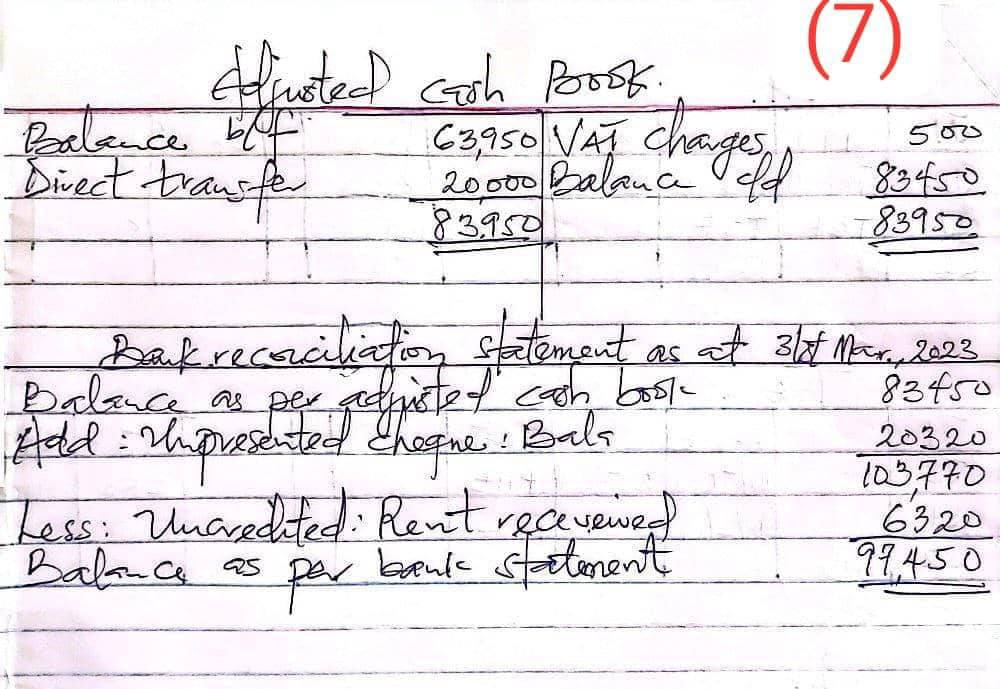 (7)
Adjusted cash Book.
Balance b/f 63,950 VAT Charges 500
Direct transfer 20,000 Balance c/d 83450
83,950 83950
Bank reconciliation statement as at 31st Mar., 2023
Balance as per adjusted cash book 83450
Add: Unpresented cheque: Bala 20320
103,770
Less: Uncredited: Rent receveived 6320
Balance as per bank statement 97,450